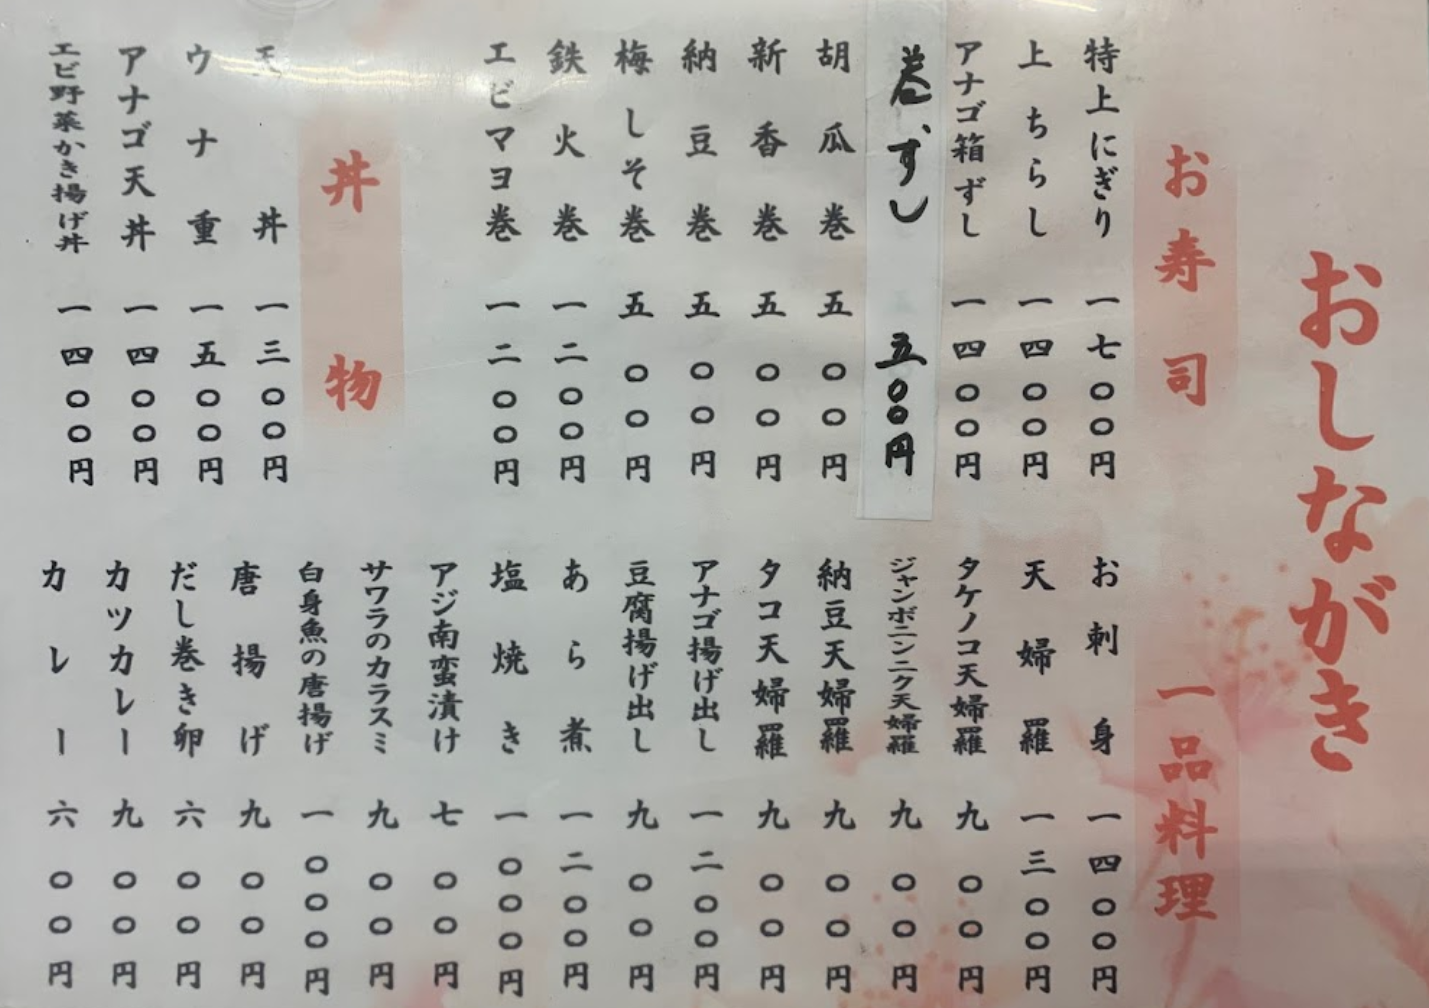 おしながき
お寿司
特上にぎり 一七〇〇円
上ちらし 一四〇〇円
アナゴ箱ずし 一四〇〇円
巻ずし 五〇〇円
胡瓜巻 五〇〇円
新香巻 五〇〇円
納豆巻 五〇〇円
梅しそ巻 五〇〇円
鉄火巻 一二〇〇円
エビマヨ巻 一二〇〇円
丼物
天丼 一三〇〇円
ウナ重 一五〇〇円
アナゴ天丼 一四〇〇円
エビ野菜かき揚げ丼 一四〇〇円
一品料理
お刺身 一四〇〇円
天婦羅 一三〇〇円
タケノコ天婦羅 九〇〇円
ジャンボニンニク天婦羅 九〇〇円
納豆天婦羅 九〇〇円
タコ天婦羅 九〇〇円
アナゴ揚げ出し 一二〇〇円
豆腐揚げ出し 九〇〇円
あら煮 一二〇〇円
塩焼き 一〇〇〇円
アジ南蛮漬け 七〇〇円
サワラのカラスミ 九〇〇円
白身魚の唐揚げ 一〇〇〇円
唐揚げ 九〇〇円
だし巻き卵 六〇〇円
カツカレー 九〇〇円
カレー 六〇〇円